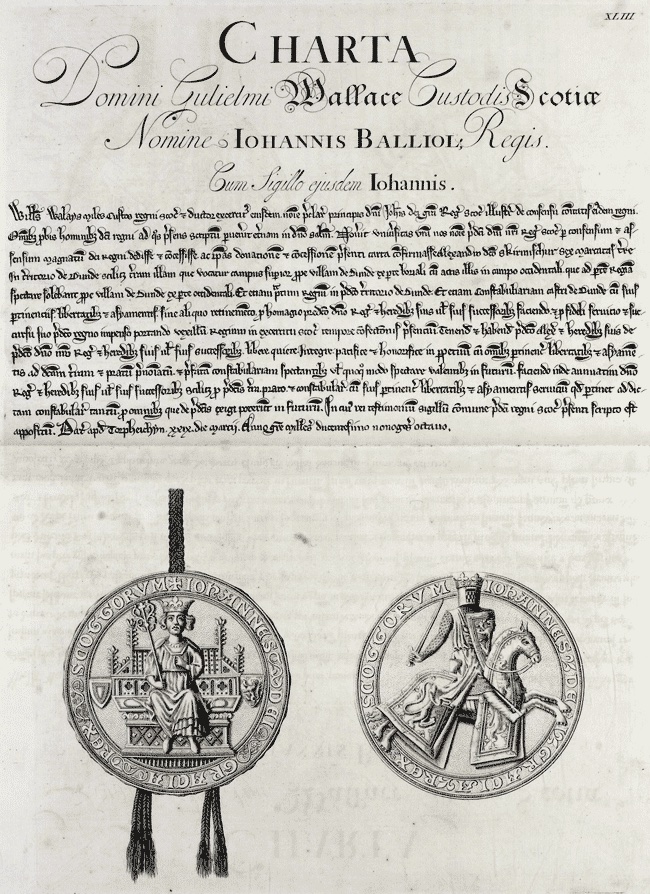 XLIII
CHARTA
Domini Gulielmi Wallace Custodis Scotiæ
Nomine IOHANNIS BALLIOL, Regis.
Cum Sigillo ejusdem Iohannis.
Walays miles Custos regni Scoc & ductor exercit eiusdem noie principis dni Joh Dei gra Reg Scoc illustr de consensu eiusdem regni.
Omib pbis hominib dci regni ad psens scriptu in dno salm. nos noie pdci dni nri Reg Scoc p consensum & as
sensum magnatu dci regni dedisse & concessisse ac donatione & concessione psenti carta confirmasse Alexandro dco Skirmischur sex marcatas tre
in territorio de Dunde scilicz tram illam que vocatur campus supior ppe villam de Dunde ex pte boriali cu acris illis in campo occidentali que ad pte Regia
spectare solebant ppe villam de Dunde ex pte occidentali. Et eciam pratum Regium in territorio de Dunde. Et eciam Constabulariam castri de Dunde cu suis
ptinenciis libertatib & sine aliquo retinemeto p homagio dno Reg & heredib suis ul suis successorib faciendo & p fideli seruicio & suc
cursu suo regno impenso portando vexillum Regium in excercitu Scoc tempore psencium Tenend & habend & heredib suis de
dno nro Reg & heredib suis ul suis successorib libere quiete integre pacifice & honorifice in cu omib ptinenc libertatib & aysiame
tis ad dictam tram & pratu & constabulariam spectantib ul quoq modo spectare valentib in futuru. faciendo inde annuatim dno
Reg & heredib suis ul suis successorib scilicz p tra prato & constabular cu suis ptinenc libertatib & seruiciu qd ptinet ad dic
tam constabular tantu p omnib que de exigi poterint in futuru. In cui rei testimoniu sigillu comune regni Scoc psenti scripto est
appositu. Dat apd Torpheichyn. xxix. die marcij. Anno millesimo ducentesimo nonoges octauo.
IOHANNES DEI GRACIA REX SCOTTORVM
IOHANNES DEI GRACIA REX SCOTTORVM